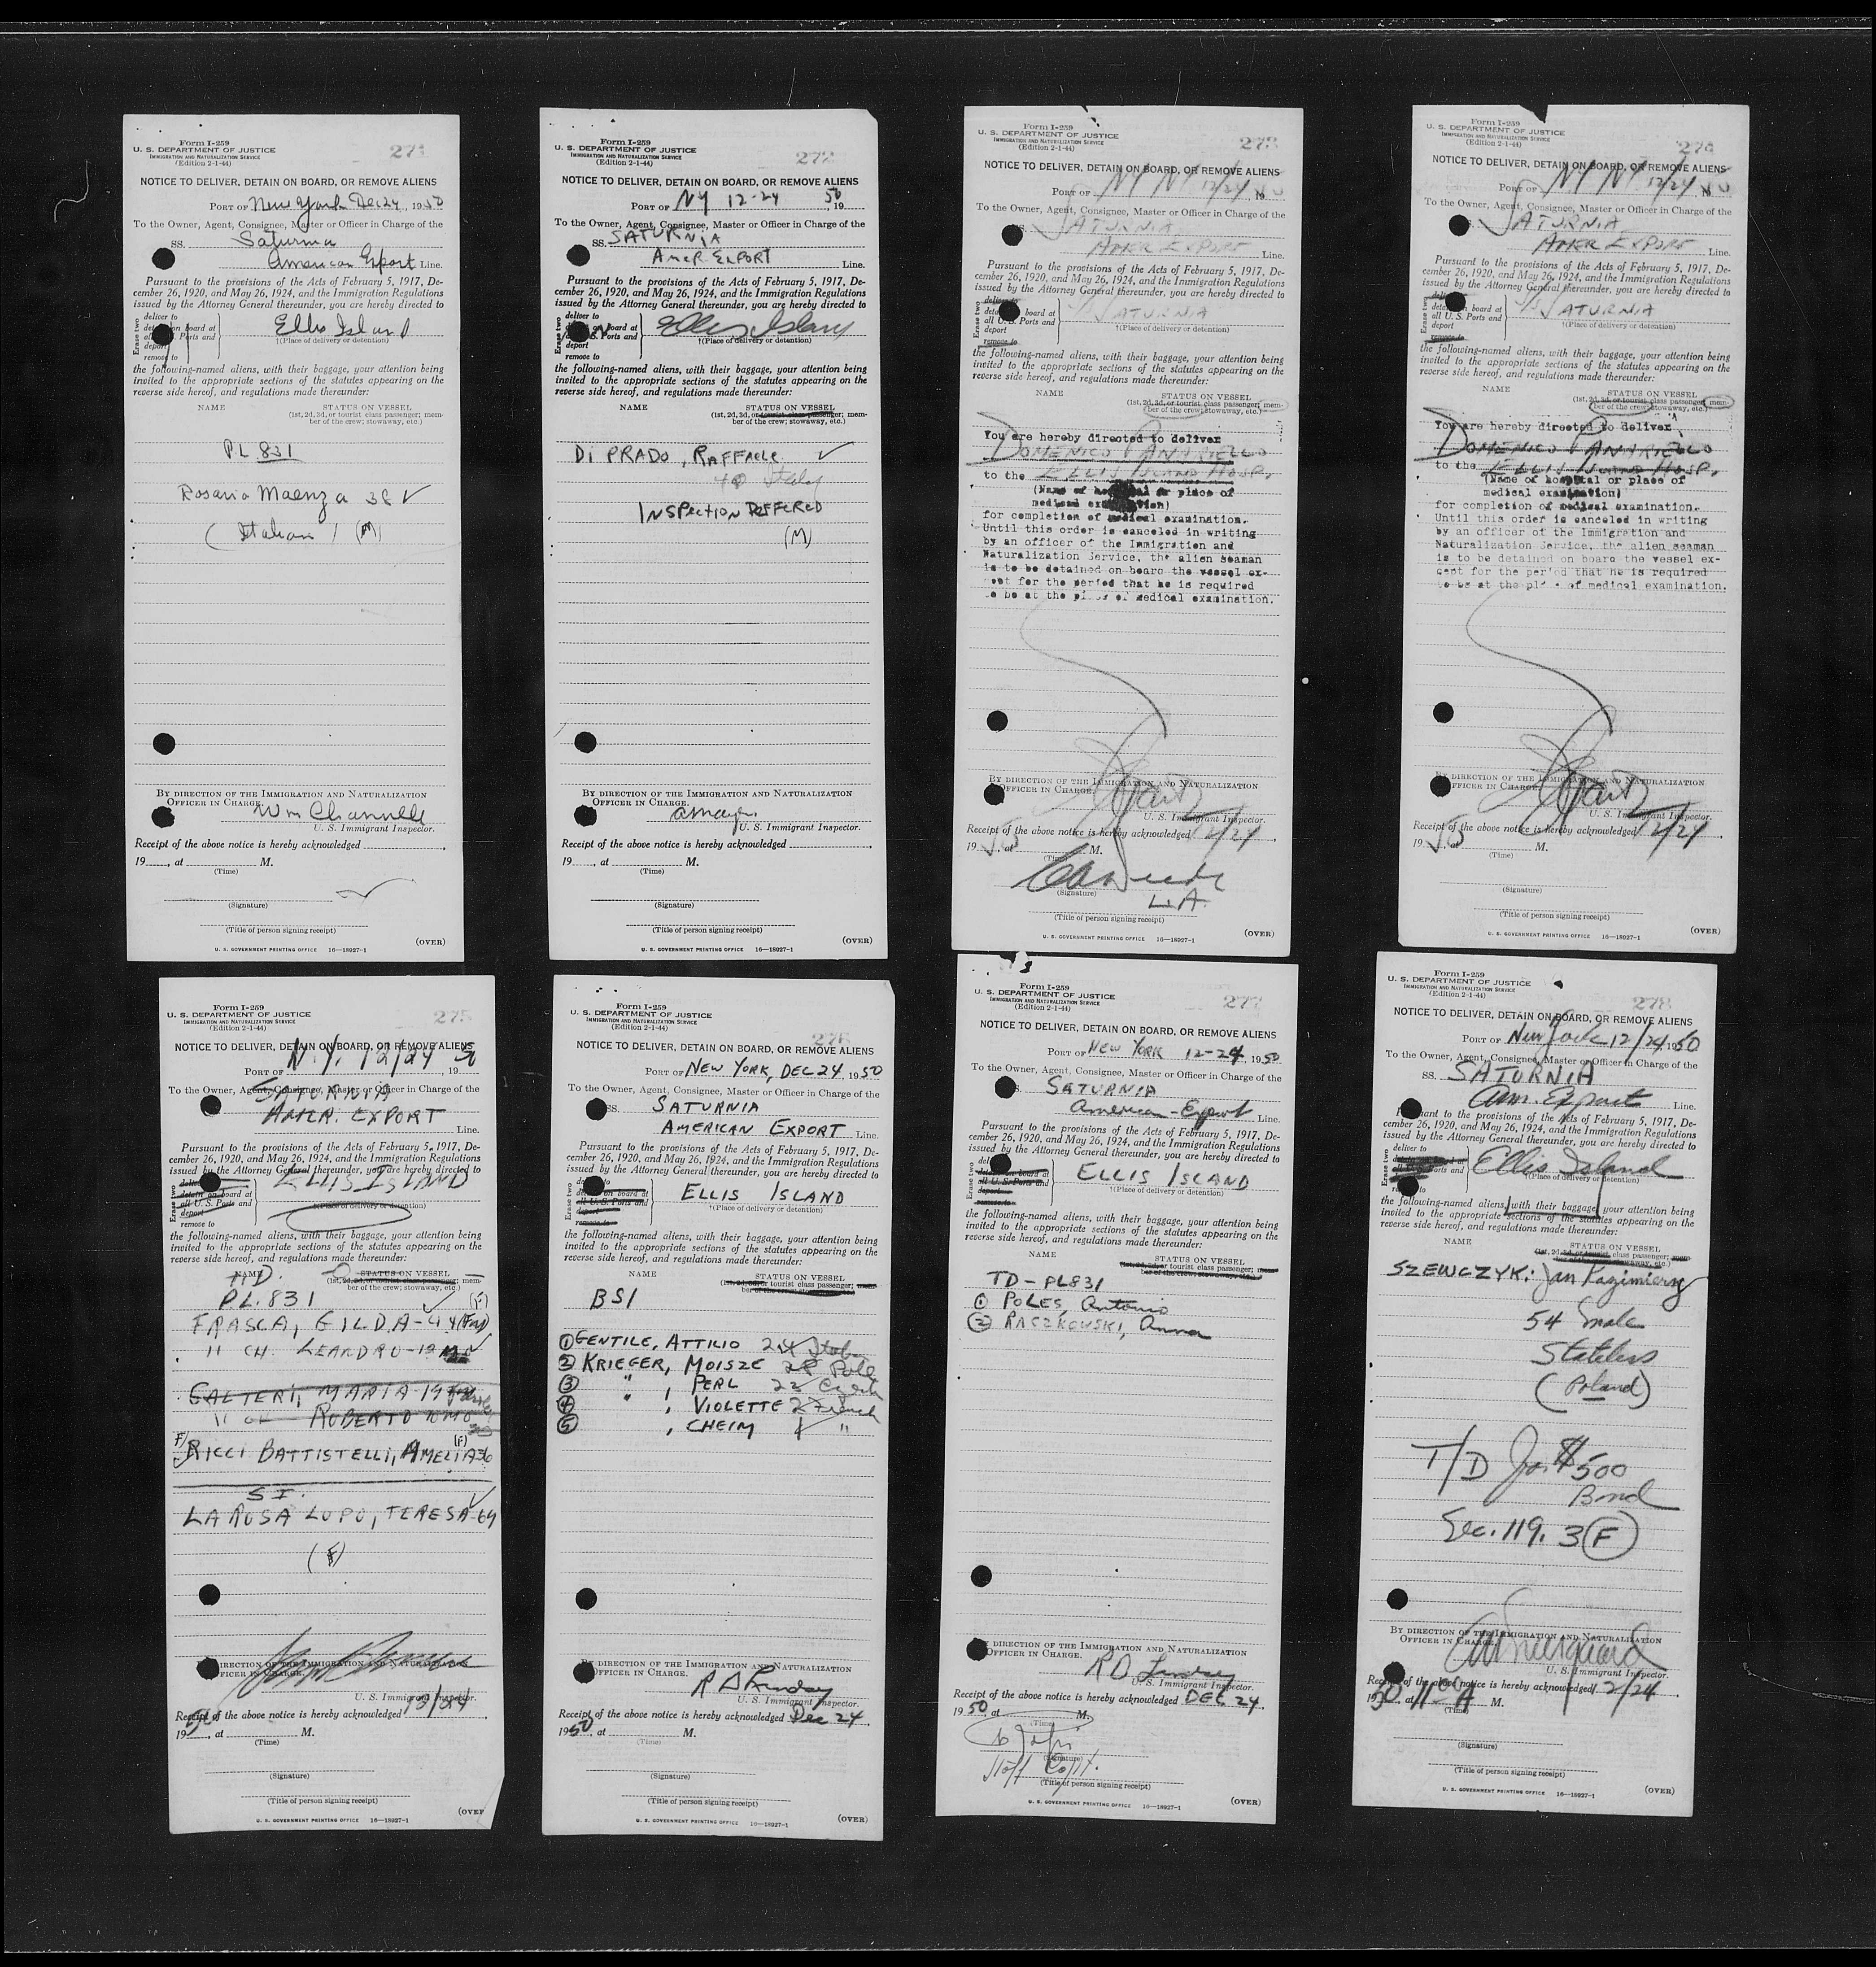 Form I-259
U. S. DEPARTMENT OF JUSTICE
IMMIGRATION AND NATURALIZATION SERVICE
(Edition 2-1-44)
271
NOTICE TO DELIVER, DETAIN ON BOARD, OR REMOVE ALIENS
PORT OF New York Dec 24, 1950
To the Owner, Agent, Consignee, Master or Officer in Charge of the
SS. Saturnia
American Export Line.
Pursuant to the provisions of the Acts of February 5, 1917, De-
cember 26, 1920, and May 26, 1924, and the Immigration Regulations
issued by the Attorney General thereunder, you are hereby directed to
Erase two
deliver to
on board at
Ports and
deport
remove to
Ellis Island
†(Place of delivery or detention)
the following-named aliens, with their baggage, your attention being
invited to the appropriate sections of the statutes appearing on the
reverse side hereof, and regulations made thereunder:
NAME STATUS ON VESSEL
(1st, 2d, 3d, or tourist class passenger; mem-
ber of the crew; stowaway, etc.)
PL 831
Rosario Maenza 38 ✓
(Italian) (M)
BY DIRECTION OF THE IMMIGRATION AND NATURALIZATION
OFFICER IN CHARGE.
U. S. Immigrant Inspector.
Receipt of the above notice is hereby acknowledged
19, at M.
(Time)
(Signature)
(Title of person signing receipt)
U. S. GOVERNMENT PRINTING OFFICE 16—18927-1
(OVER)
Form I-259
U. S. DEPARTMENT OF JUSTICE
IMMIGRATION AND NATURALIZATION SERVICE
(Edition 2-1-44)
272
NOTICE TO DELIVER, DETAIN ON BOARD, OR REMOVE ALIENS
PORT OF NY 12-24, 1950
To the Owner, Agent, Consignee, Master or Officer in Charge of the
SS. SATURNIA
AMER EXPORT Line.
Pursuant to the provisions of the Acts of February 5, 1917, De-
cember 26, 1920, and May 26, 1924, and the Immigration Regulations
issued by the Attorney General thereunder, you are hereby directed to
Erase two
deliver to
on board at
S. Ports and
deport
remove to
Ellis Island
†(Place of delivery or detention)
the following-named aliens, with their baggage, your attention being
invited to the appropriate sections of the statutes appearing on the
reverse side hereof, and regulations made thereunder:
NAME STATUS ON VESSEL
(1st, 2d, 3d, or tourist class passenger; mem-
ber of the crew; stowaway, etc.)
DI PRADO, RAFFAELE ✓
40 Italy
INSPECTION DEFFERED
(M)
BY DIRECTION OF THE IMMIGRATION AND NATURALIZATION
OFFICER IN CHARGE.
U. S. Immigrant Inspector.
Receipt of the above notice is hereby acknowledged
19, at M.
(Time)
(Signature)
(Title of person signing receipt)
U. S. GOVERNMENT PRINTING OFFICE 16—18927-1
(OVER)
Form I-259
U. S. DEPARTMENT OF JUSTICE
IMMIGRATION AND NATURALIZATION SERVICE
(Edition 2-1-44)
273
NOTICE TO DELIVER, DETAIN ON BOARD, OR REMOVE ALIENS
PORT OF NY NY 12/24 19
To the Owner, Agent, Consignee, Master or Officer in Charge of the
SATURNIA
AMER EXPORT Line.
Pursuant to the provisions of the Acts of February 5, 1917, De-
cember 26, 1920, and May 26, 1924, and the Immigration Regulations
issued by the Attorney General thereunder, you are hereby directed to
Erase two
deliver to
board at
all U. S. Ports and
deport
remove to
SATURNIA
†(Place of delivery or detention)
the following-named aliens, with their baggage, your attention being
invited to the appropriate sections of the statutes appearing on the
reverse side hereof, and regulations made thereunder:
NAME STATUS ON VESSEL
(1st, 2d, 3d, or tourist class passenger; mem-
ber of the crew; stowaway, etc.)
You are hereby directed to deliver
DOMENICO PANARIELLO
to the ELLIS ISLAND HOSP.
(Name of hospital or place of
medical examination)
for completion of medical examination.
Until this order is canceled in writing
by an officer of the Immigration and
Naturalization Service, the alien seaman
is to be detained on board the vessel ex-
cept for the period that he is required
to be at the place of medical examination.
BY DIRECTION OF THE IMMIGRATION AND NATURALIZATION
OFFICER IN CHARGE.
U. S. Immigrant Inspector.
Receipt of the above notice is hereby acknowledged 12/24
1950, at M.
(Time)
(Signature)
(Title of person signing receipt)
U. S. GOVERNMENT PRINTING OFFICE 16—18927-1
(OVER)
Form I-259
U. S. DEPARTMENT OF JUSTICE
IMMIGRATION AND NATURALIZATION SERVICE
(Edition 2-1-44)
274
NOTICE TO DELIVER, DETAIN ON BOARD, OR REMOVE ALIENS
PORT OF NY NY 12/24 19
To the Owner, Agent, Consignee, Master or Officer in Charge of the
SATURNIA
AMER EXPORT Line.
Pursuant to the provisions of the Acts of February 5, 1917, De-
cember 26, 1920, and May 26, 1924, and the Immigration Regulations
issued by the Attorney General thereunder, you are hereby directed to
Erase two
on board at
all U. S. Ports and
deport
remove to
SATURNIA
†(Place of delivery or detention)
the following-named aliens, with their baggage, your attention being
invited to the appropriate sections of the statutes appearing on the
reverse side hereof, and regulations made thereunder:
NAME STATUS ON VESSEL
(1st, 2d, 3d, or tourist class passenger; mem-
ber of the crew; stowaway, etc.)
You are hereby directed to deliver
DOMENICO PANARIELLO
to the ELLIS ISLAND HOSP.
(Name of hospital or place of
medical examination)
for completion of medical examination.
Until this order is canceled in writing
by an officer of the Immigration and
Naturalization Service, the alien seaman
is to be detained on board the vessel ex-
cept for the period that he is required
to be at the place of medical examination.
BY DIRECTION OF THE IMMIGRATION AND NATURALIZATION
OFFICER IN CHARGE.
U. S. Immigrant Inspector.
Receipt of the above notice is hereby acknowledged 12/24
1950, at M.
(Time)
(Signature)
(Title of person signing receipt)
U. S. GOVERNMENT PRINTING OFFICE 16—18927-1
(OVER)
Form I-259
U. S. DEPARTMENT OF JUSTICE
IMMIGRATION AND NATURALIZATION SERVICE
(Edition 2-1-44)
275
NOTICE TO DELIVER, DETAIN ON BOARD, OR REMOVE ALIENS
PORT OF N.Y. 12/24, 1950
To the Owner, Agent, Consignee, Master or Officer in Charge of the
SATURNIA
AMER. EXPORT
Pursuant to the provisions of the Acts of February 5, 1917, De-
cember 26, 1920, and May 26, 1924, and the Immigration Regulations
issued by the Attorney General thereunder, you are hereby directed to
Erase two
deliver to
detain on board at
all U. S. Ports and
deport
remove to
ELLIS ISLAND
†(Place of delivery or detention)
the following-named aliens, with their baggage, your attention being
invited to the appropriate sections of the statutes appearing on the
reverse side hereof, and regulations made thereunder:
NAME STATUS ON VESSEL
(1st, 2d, 3d, or tourist class passenger; mem-
ber of the crew; stowaway, etc.)
TD.
PL. 831 ✓ (F)
FRASCA, GILDA-44
" CH. LEANDRO-12 ✓
GALTERI, MARIA-19
" CH ROBERTO 10 MO
RICCI BATTISTELLI, AMELIA 36 (F)
S I.
LA ROSA LUPO, TERESA-69 ✓
(F)
BY DIRECTION OF THE IMMIGRATION AND NATURALIZATION
OFFICER IN CHARGE.
U. S. Immigrant Inspector.
Receipt of the above notice is hereby acknowledged 12/24
1950, at M.
(Time)
(Signature)
(Title of person signing receipt)
U. S. GOVERNMENT PRINTING OFFICE 16—18927-1
(OVER
Form I-259
U. S. DEPARTMENT OF JUSTICE
IMMIGRATION AND NATURALIZATION SERVICE
(Edition 2-1-44)
276
NOTICE TO DELIVER, DETAIN ON BOARD, OR REMOVE ALIENS
PORT OF NEW YORK, DEC 24, 1950
To the Owner, Agent, Consignee, Master or Officer in Charge of the
SS. SATURNIA
AMERICAN EXPORT Line.
Pursuant to the provisions of the Acts of February 5, 1917, De-
cember 26, 1920, and May 26, 1924, and the Immigration Regulations
issued by the Attorney General thereunder, you are hereby directed to
Erase two
detain on board at
all U. S. Ports and
deport
remove to
ELLIS ISLAND
†(Place of delivery or detention)
the following-named aliens, with their baggage, your attention being
invited to the appropriate sections of the statutes appearing on the
reverse side hereof, and regulations made thereunder:
NAME STATUS ON VESSEL
(1st, 2d, 3d, or tourist class passenger; mem-
ber of the crew; stowaway, etc.)
BSI
① GENTILE, ATTILIO 24 Italy
② KRIEGER, MOISZE 28 Pole
③ " , PERL 23 Czech
④ " , VIOLETTE 2 French
⑤ , CHEIM 1 "
BY DIRECTION OF THE IMMIGRATION AND NATURALIZATION
OFFICER IN CHARGE.
R D Lindsay
U. S. Immigrant Inspector.
Receipt of the above notice is hereby acknowledged Dec 24,
1950, at M.
(Time)
(Signature)
(Title of person signing receipt)
U. S. GOVERNMENT PRINTING OFFICE 16—18927-1
(OVER)
Form I-259
U. S. DEPARTMENT OF JUSTICE
IMMIGRATION AND NATURALIZATION SERVICE
(Edition 2-1-44)
277
NOTICE TO DELIVER, DETAIN ON BOARD, OR REMOVE ALIENS
PORT OF NEW YORK 12-24, 1950
To the Owner, Agent, Consignee, Master or Officer in Charge of the
SATURNIA
American-Export Line.
Pursuant to the provisions of the Acts of February 5, 1917, De-
cember 26, 1920, and May 26, 1924, and the Immigration Regulations
issued by the Attorney General thereunder, you are hereby directed to
Erase two
on board at
all U. S. Ports and
deport
remove to
ELLIS ISLAND
†(Place of delivery or detention)
the following-named aliens, with their baggage, your attention being
invited to the appropriate sections of the statutes appearing on the
reverse side hereof, and regulations made thereunder:
NAME STATUS ON VESSEL
(1st, 2d, 3d, or tourist class passenger; mem-
ber of the crew; stowaway, etc.)
TD-PL831
① POLES, Antonio
② RACZKOWSKI, Anna
BY DIRECTION OF THE IMMIGRATION AND NATURALIZATION
OFFICER IN CHARGE.
R D Lindsay
U. S. Immigrant Inspector.
Receipt of the above notice is hereby acknowledged DEC. 24,
1950, at M.
(Time)
(Signature)
Staff Capt.
(Title of person signing receipt)
U. S. GOVERNMENT PRINTING OFFICE 16—18927-1
(OVER)
Form I-259
U. S. DEPARTMENT OF JUSTICE
IMMIGRATION AND NATURALIZATION SERVICE
(Edition 2-1-44)
278
NOTICE TO DELIVER, DETAIN ON BOARD, OR REMOVE ALIENS
PORT OF New York 12/24, 1950
To the Owner, Agent, Consignee, Master or Officer in Charge of the
SS. SATURNIA
Am. Export Line.
Pursuant to the provisions of the Acts of February 5, 1917, De-
cember 26, 1920, and May 26, 1924, and the Immigration Regulations
issued by the Attorney General thereunder, you are hereby directed to
Erase two
deliver to
Ports and
remove to
Ellis Island
†(Place of delivery or detention)
the following-named aliens, with their baggage, your attention being
invited to the appropriate sections of the statutes appearing on the
reverse side hereof, and regulations made thereunder:
NAME STATUS ON VESSEL
(1st, 2d, 3d, or tourist class passenger; mem-
ber of the crew; stowaway, etc.)
SZEWCZYK: Jan Kazimierz
54 male
Stateless
(Poland)
T/D for $500
Bond
Sec. 119. 3 (F)
BY DIRECTION OF THE IMMIGRATION AND NATURALIZATION
OFFICER IN CHARGE.
U. S. Immigrant Inspector.
Receipt of the above notice is hereby acknowledged 12/24
1950, at 11 00 A M.
(Time)
(Signature)
(Title of person signing receipt)
U. S. GOVERNMENT PRINTING OFFICE 16—18927-1
(OVER)